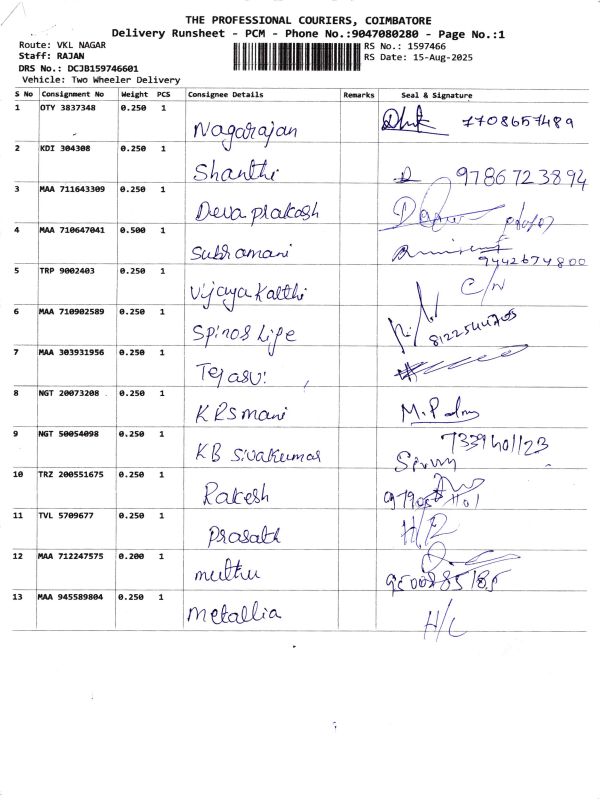 THE PROFESSIONAL COURIERS, COIMBATORE
Delivery Runsheet - PCM - Phone No.:9047080280 - Page No.:1
Route: VKL NAGAR RS No.: 1597466
Staff: RAJAN RS Date: 15-Aug-2025
DRS No.: DCJB159746601
Vehicle: Two Wheeler Delivery
S No Consignment No Weight PCS Consignee Details Remarks Seal & Signature
1 OTY 3837348 0.250 1 Nagarajan 7708657489
2 KDI 304308 0.250 1 Shanthi 9786723894
3 MAA 711643309 0.250 1 Deva prakash
4 MAA 710647041 0.500 1 Subramani 9442674800
5 TRP 9002403 0.250 1 Vijaya Kalthi C/N
6 MAA 710902589 0.250 1 Spiros Life
7 MAA 303931956 0.250 1 Tejasvi
8 NGT 20073208 0.250 1 KRS mani
9 NGT 50054098 0.250 1 KB Sivakumar 7339401123
10 TRZ 200551675 0.250 1 Rakesh
11 TVL 5709677 0.250 1 Prasath
12 MAA 712247575 0.200 1 muthu
13 MAA 945589804 0.250 1 Metallia H/C